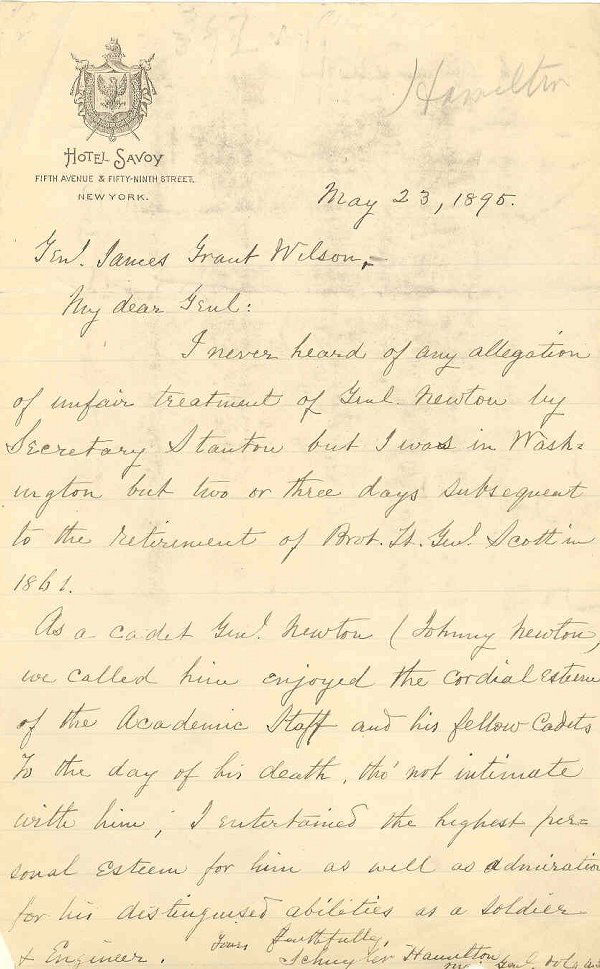 Hamilton
HOTEL SAVOY
FIFTH AVENUE & FIFTY-NINTH STREET,
NEW YORK.
May 23, 1895.
Genl. James Grant Wilson,
My dear Genl:
I never heard of any allegation
of unfair treatment of Genl. Newton by
Secretary Stanton but I was in Wash=
ington but two or three days subsequent
to the retirement of Brvt. Lt. Genl. Scott in
1861.
As a cadet Genl. Newton (Johnny Newton,
we called him enjoyed the cordial esteem
of the Academic Staff and his fellow Cadets
To the day of his death, tho' not intimate
with him; I entertained the highest per=
sonal esteem for him as well as admiration
for his distinguised abilities as a soldier
& Engineer. Yours faithfully,
Schuyler Hamilton
Genl. Vols